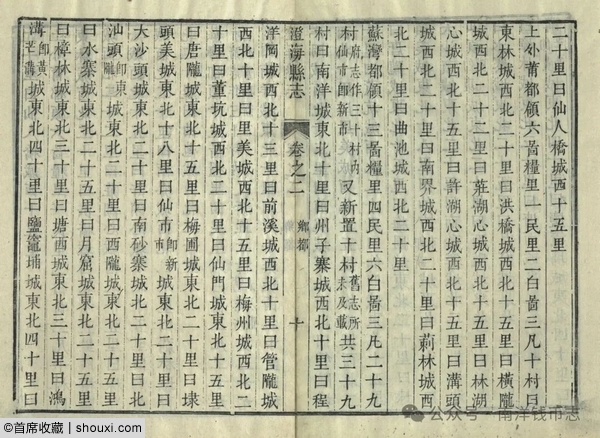 二十里曰仙人橋城西十五里
上外莆都領六啚糧里一民里二白啚三凡十村曰
東林城西北二十里曰洪橋城西二十里曰橫隴
城西北二十二里曰莊湖心城西北十五里曰林湖
心城西北十五里曰許湖心城西北十五里曰溝頭
城西北二十里曰南界城西北二十里曰莿林城西
北二十里曰曲池城西北二十里
蘇灣都領十三啚糧里四民里六白啚三凡二十九
村府志作三十村內仙市卽新市又新置十村舊志所未及載共三十九
村曰南洋城東北十里曰州子寨城西北十里曰程
澄海縣志 卷之二 鄉都 十
洋岡城西北十三里曰前溪城西北十里曰管隴城
西北十里曰里美城西北二十里曰梅州城西北二
十里曰董坑城西北二十里曰仙門城東北十五里
曰唐隴城東北十五里曰梅圃城東北二十里曰埭
頭美城東北十八里曰仙市卽新市城東北二十里曰
大沙頭城東北二十里曰南砂寨城北二十里曰北
汕頭卽東隴城東北二十里曰西隴城東北二十里
曰水寨城東北二十五里曰月窟城東北二十五里
曰樟林城東北三十里曰塘西城東北三十里曰鴻
溝卽黃芒溝城東北四十里曰鹽竈埔城東北四十里曰
公众号·南洋钱币志
@首席收藏 | shouxi.com